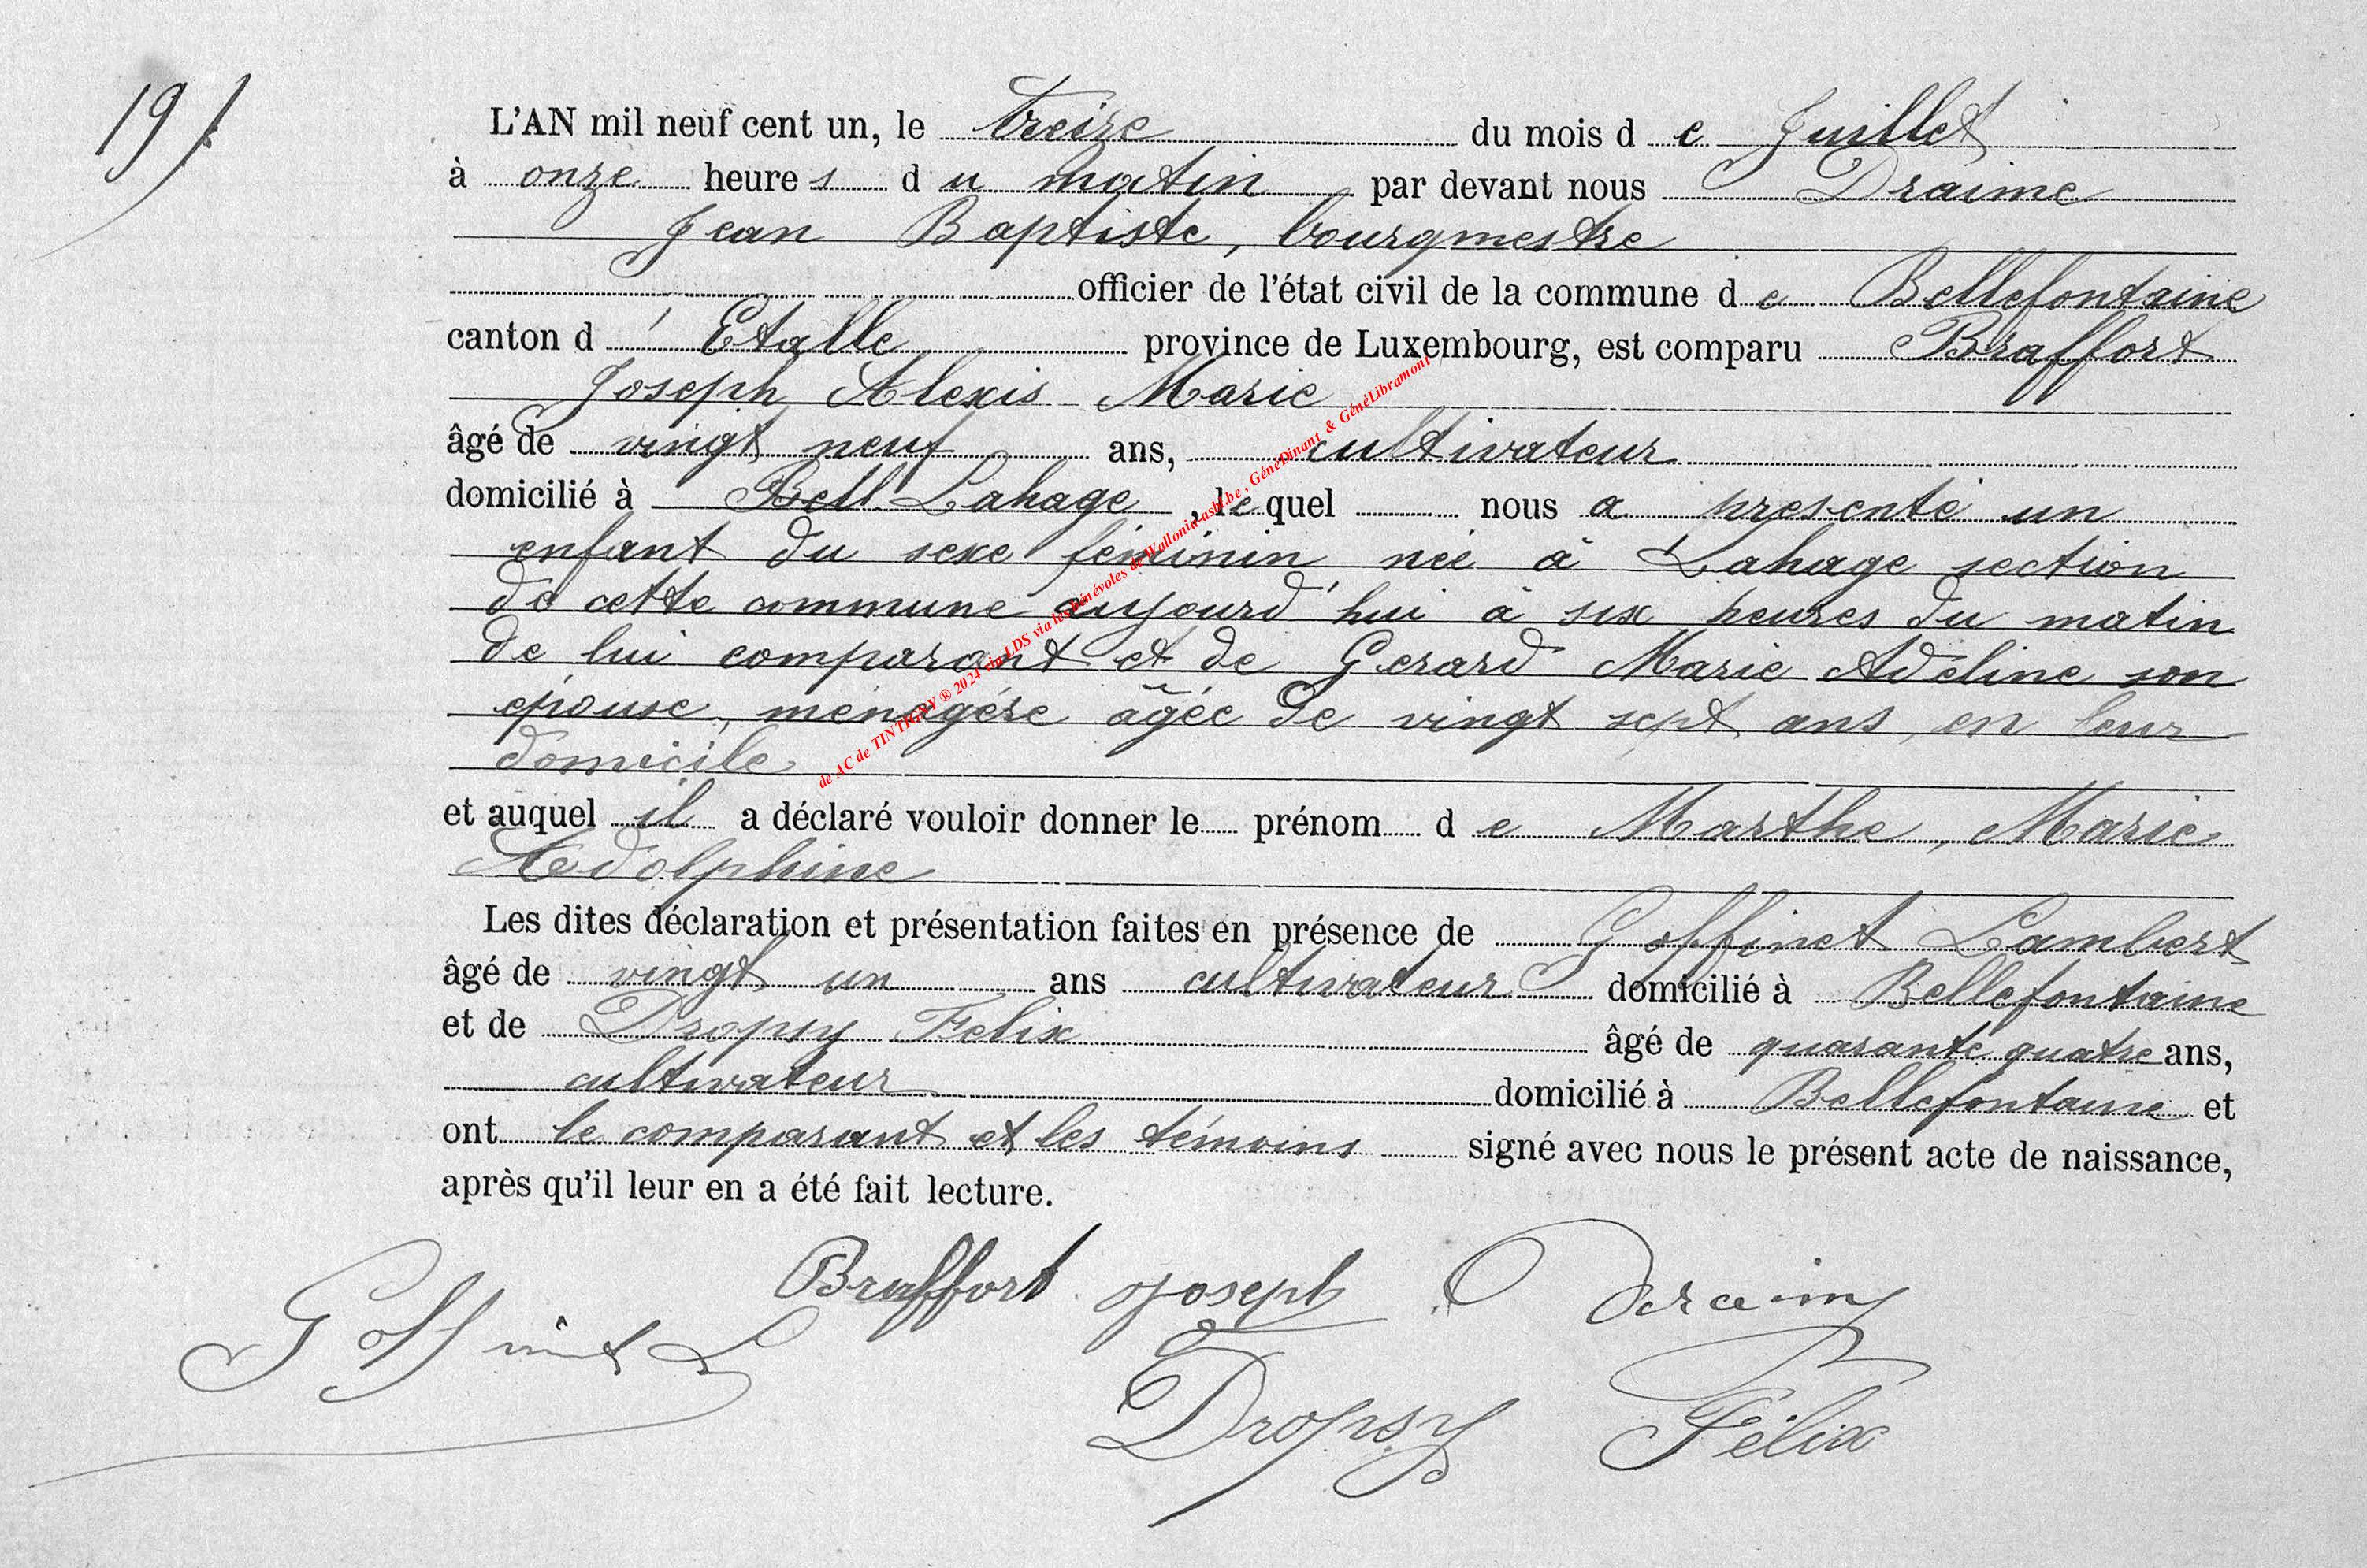 19/
L'AN mil neuf cent un, le treize du mois de Juillet
à onze heures du matin par devant nous Draime
Jean Baptiste, bourgmestre
officier de l'état civil de la commune de Bellefontaine
canton d'Etalle province de Luxembourg, est comparu Braffort
Joseph Alexis Marie
âgé de vingt neuf ans, cultivateur
domicilié à Bell. Lahage, lequel nous a présenté un
enfant du sexe féminin née à Lahage section
de cette commune aujourd'hui à six heures du matin
de lui comparant et de Gerard Marie Adéline son
épouse, ménagére âgée de vingt sept ans, en leur
domicile
et auquel il a déclaré vouloir donner le prénom de Marthe, Marie
Adolphine
Les dites déclaration et présentation faites en présence de Goffinet Lambert
âgé de vingt un ans cultivateur domicilié à Bellefontaine
et de Dropsy Felix âgé de quarante quatre ans,
cultivateur domicilié à Bellefontaine et
ont le comparant et les témoins signé avec nous le présent acte de naissance,
après qu'il leur en a été fait lecture.
Braffort Joseph
Goffinet L
Dropsy Félix
de AC de TINTIGNY ® 2024 via LDS via les Bénévoles de Wallonia-asbl.be, GénéDinant & GénéLibramont